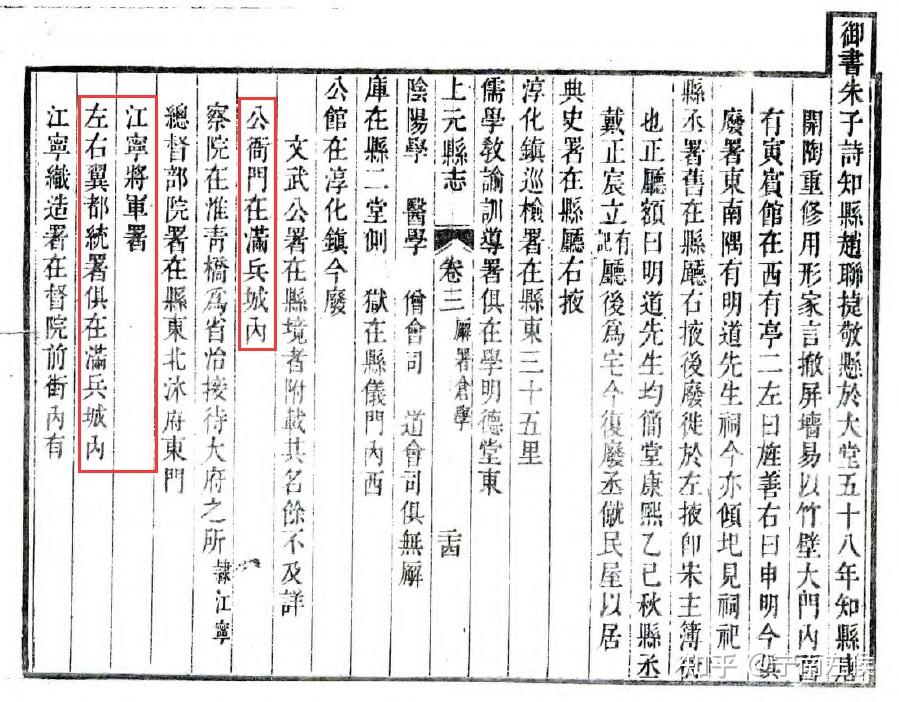 御書朱子詩知縣趙聯捷敬懸於大堂五十八年知縣
開陶重修用形家言撤屏墻易以竹壁大門內舊
有寅賓館在西有亭二左曰旌善右曰申明今俱
廢署東南隅有明道先生祠今亦傾圯見祠祀
縣丞署舊在縣廳右掖後廢徙於左掖卽朱主簿
也正廳額曰明道先生均簡堂康熙乙巳秋縣丞
戴正宸立有記廳後爲宅今復廢丞僦民屋以居
典史署在縣廳右掖
淳化鎮巡檢署在縣東三十五里
儒學敎諭訓導署俱在學明德堂東
上元縣志 卷三 廨署倉學
陰陽學 醫學 僧會司 道會司俱無廨
庫在縣二堂側 獄在縣儀門內西
公館在淳化鎮今廢
文武公署在縣境者附載其名餘不及詳
公衙門在滿兵城內
察院在淮青橋爲省治接待大府之所 隸江寧
總督部院署在縣東北泳府東門
江寧將軍署
左右翼都統署俱在滿兵城內
江寧織造署在督院前街內有
知乎